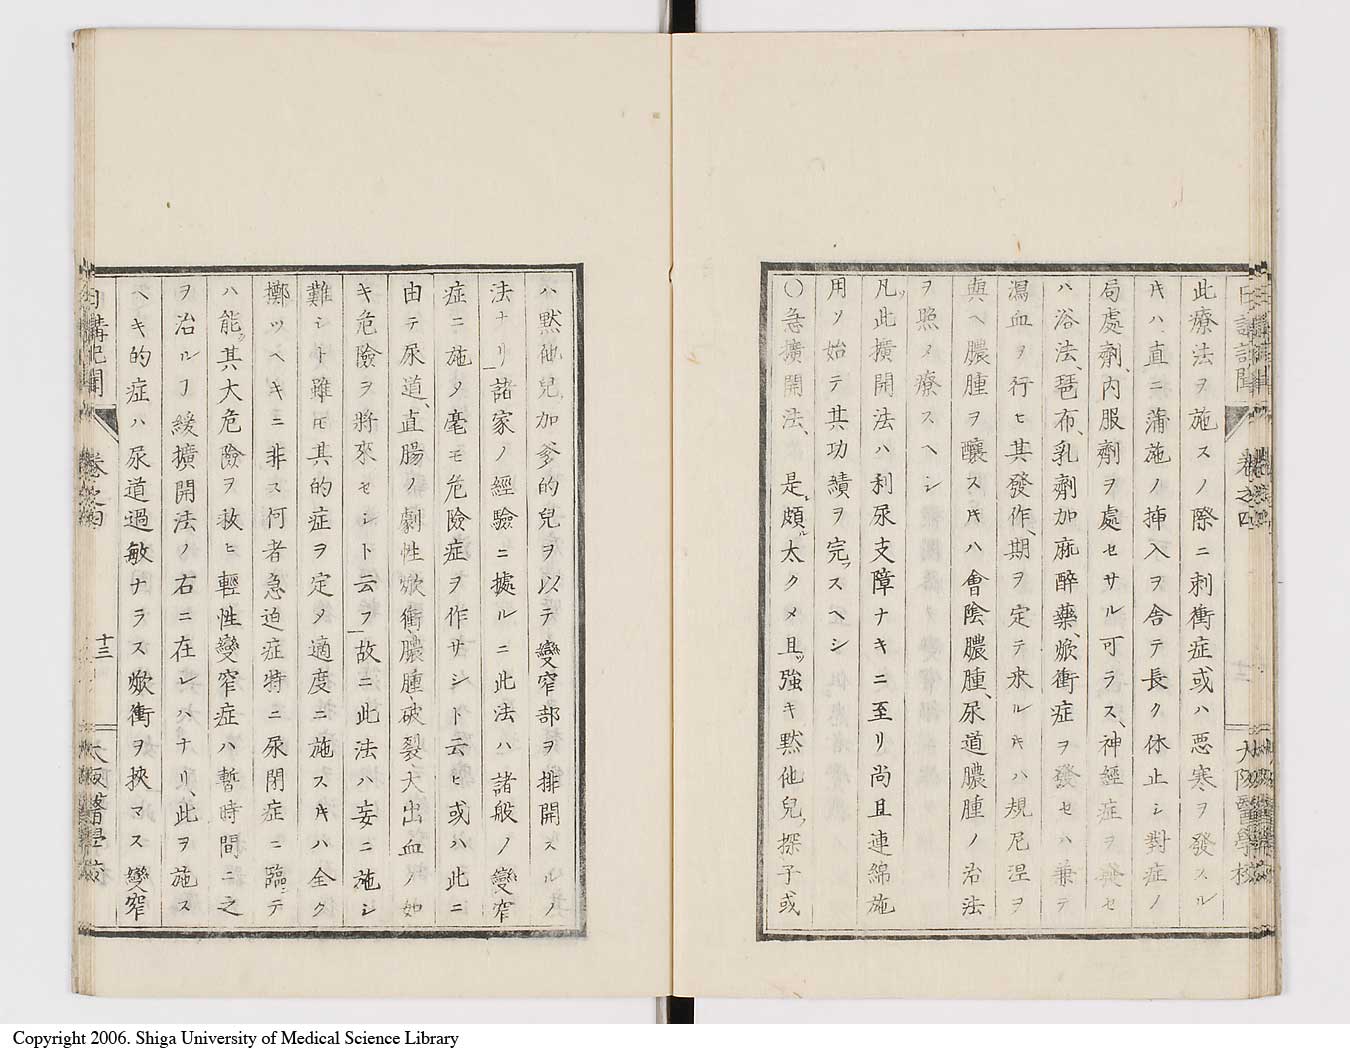 此療法ヲ施スノ際ニ刺衝症或ハ悪寒ヲ發スル
片ハ直ニ蒲施ノ挿入ヲ舎テ長ク休止シ對症ノ
局處劑、内服劑ヲ處セサル可ラス、神經症ヲ發セ
ハ浴法、琶布、乳劑加麻醉藥、焮衝症ヲ發セハ兼テ
瀉血ヲ行ヒ其發作、期ヲ定テ来ル片ハ規尼涅ヲ
與ヘ膿腫ヲ釀ス片ハ會陰膿腫、尿道膿腫ノ治法
ヲ照メ療スヘシ
凡ッ此擴開法ハ利尿支障ナキニ至リ尚且連綿施
用ソ始テ其功績ヲ完ッスヘシ
〇急擴開法、是レ頗ル太クメ且ッ強キ黙他兒ッ探子或
日講記聞 卷之四 大阪醫學校
ハ黙他兒、加爹的兒ヲ以テ變窄部ヲ排開スルノ
法ナリ諸家ノ經驗ニ據ルニ此法ハ諸般ノ變窄
症ニ施メ毫モ危險症ヲ作サシト云ヒ或ハ此ニ
由テ尿道、直腸ノ劇性焮衝、膿腫、破裂大出血ノ如
キ危險ヲ將來セシト云フ故ニ此法ハ妄ニ施シ
難シト雖モ其的症ヲ定メ適度ニ施ス片ハ全ク
擲ツヘキニ非ス何者急迫症特ニ尿閉症ニ臨ンテ
ハ能ク其大危險ヲ救ヒ輕性變窄症ハ暫時間ニ之
ヲ治ルヿ緩擴開法ノ右ニ在レハナリ、此ヲ施ス
ヘキ的症ハ尿道過敏ナラス焮衝ヲ挾マス變窄
日講記聞 卷之四 十三 大阪醫學校
Copyright 2006. Shiga University of Medical Science Library